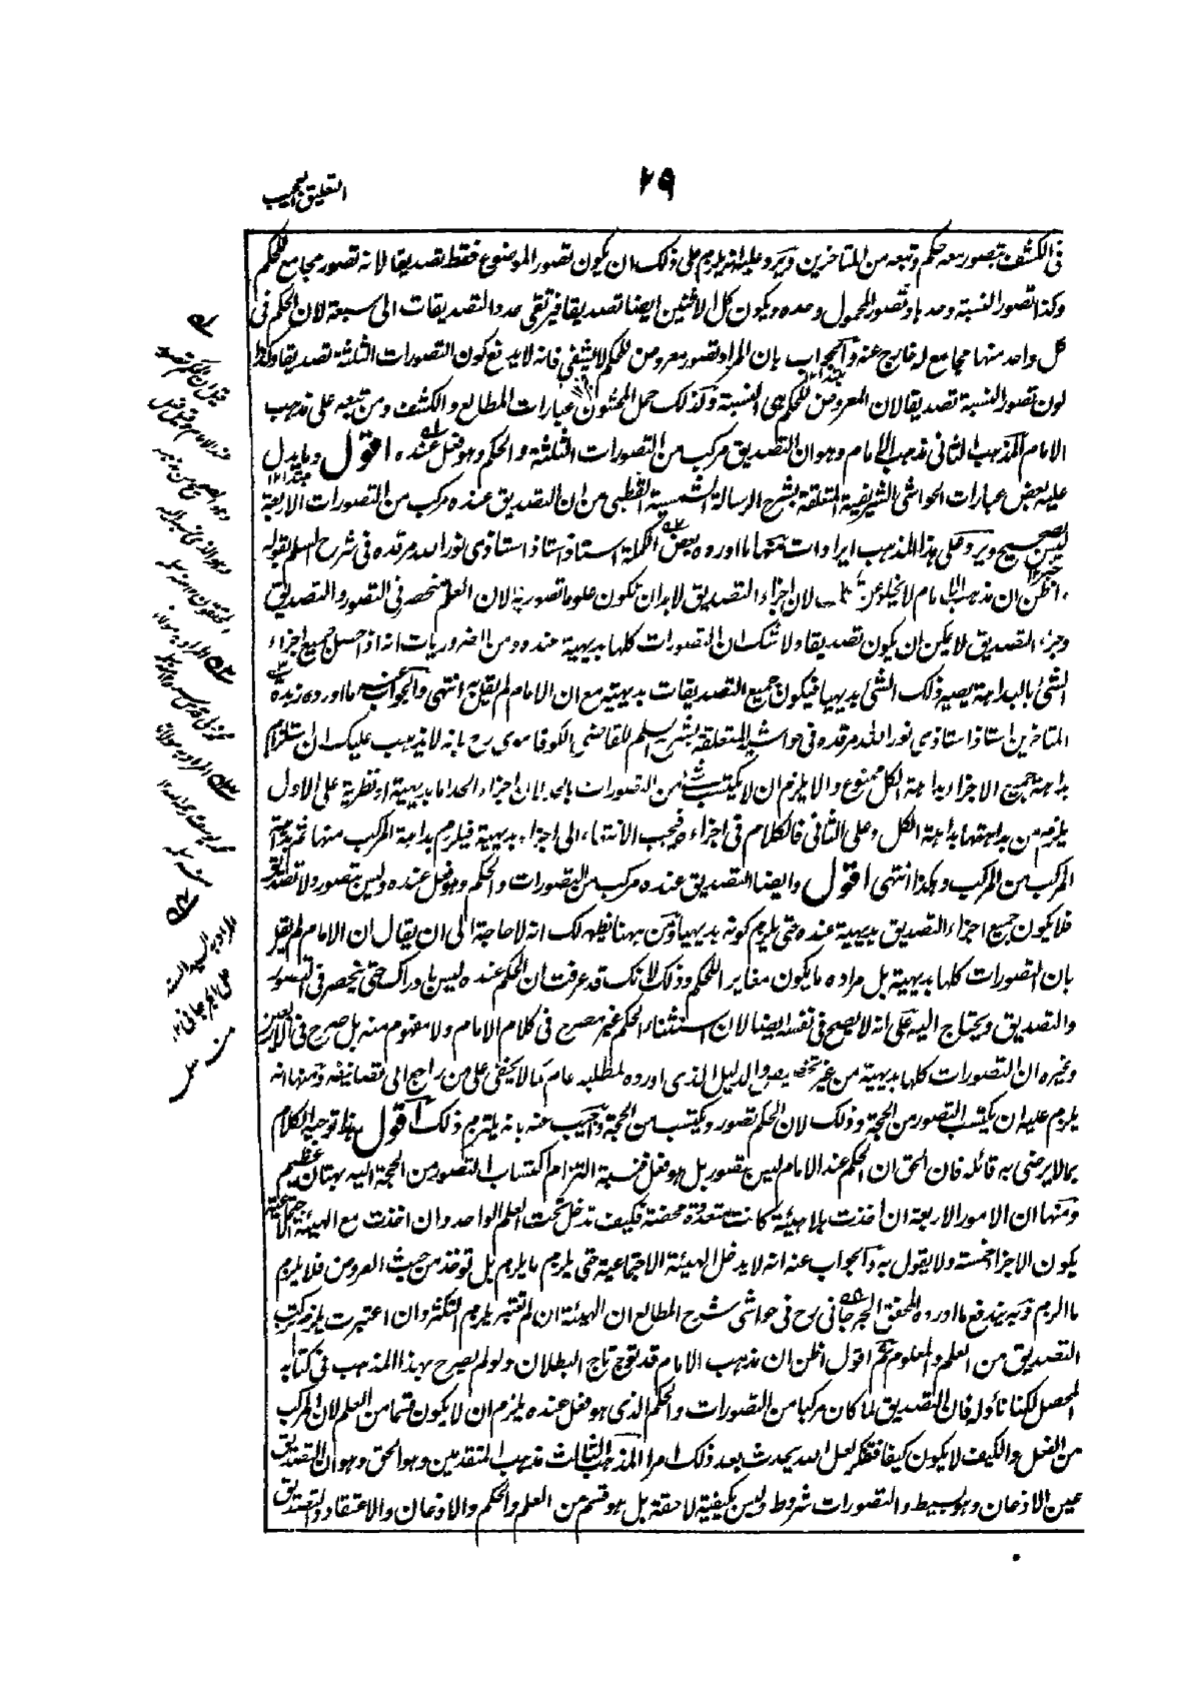 ٢٩
التعليق العجيب
فى الكشف بتصور معه حكم وتبعه من المتاخرين ويرد عليه انه يلزم على ذلك ان يكون تصور الموضوع فقط تصديقا لانه تصور مجامع للحكم
وكذا تصور النسبة وحدها وتصور المحمول وحده ويكون كل الاثنين ايضا تصديقا فيرتقى عدد التصديقات الى سبعة لان الحكم فى
كل واحد منها مجامع له خارج عنه والجواب بان المراد تصور معروض للحكم لا يشفى فانه لا يدفع كون التصورات الثلثة تصديقا وكذا
كون تصور النسبة تصديقا لان المعروض للحكم هى النسبة وكذلك حمل المحشون عبارات المطالع والكشف ومن تبعه على مذهب
الامام المذهب الثانى مذهب الامام وهو ان التصديق مركب من التصورات الثلثة والحكم وهو فعل عنده اقول وما يدل
عليه بعض عبارات الحواشى الشريفية المتعلقة بشرح الرسالة الشمسية للقطبى من ان التصديق عنده مركب من التصورات الاربعة
ليس بصحيح ويرد على هذا المذهب ايرادات منها ما اورده بعض الكملة استاذ استاذ استاذى نور الله مرقده فى شرح السلم بقوله
اظن ان مذهب الامام لا يخلو عن لان اجزاء التصديق لا بد ان تكون علوما تصورية لان العلم منحصر فى التصور والتصديق
وجزء التصديق لا يمكن ان يكون تصديقا ولا شك ان التصورات كلها بديهية عنده ومن الضروريات انه اذا حصل جميع اجزاء
الشئ بالبداهة يصير ذلك الشئ بديهيا فيكون جميع التصديقات بديهية مع ان الامام لم يقل به انتهى والجواب عنه ما اورده زبدة
المتاخرين استاذ استاذى نور الله مرقده فى حواشيه المتعلقة بشرح السلم للقاضى الكوفاموى رح بانه لا يذهب عليك ان استلزام
بداهة جميع الاجزاء بداهة الكل ممنوع والا يلزم ان لا يكتسب شئ من التصورات بالحد لان اجزاء الحد اما بديهية او نظرية على الاول
يلزم من بداهتها بداهة الكل وعلى الثانى فالكلام فى اجزاءه فيجب الانتهاء الى اجزاء بديهية فيلزم بداهة المركب منها ثم بداهة
المركب من المركب وهكذا انتهى اقول وايضا التصديق عنده مركب من التصورات والحكم وهو فعل عنده وليس بتصور ولا تصديق
فلا يكون جميع اجزاء التصديق بديهية عنده حتى يلزم كونه بديهيا ومن ههنا ظهر لك انه لا حاجة الى ان يقال ان الامام لم يقل
بان التصورات كلها بديهية بل مراده ما يكون مغاير اللحكم وذلك لانك قد عرفت ان الحكم عنده ليس بادراك حتى ينحصر فى التصور
والتصديق ويحتاج اليه على انه لا يصح فى نفسه ايضا لان استثناء الحكم غير مصرح فى كلام الامام ولا مفهوم منه بل صرح فى الاربعين
وغيره ان التصورات كلها بديهية من غير تخصيص والدليل الذى اورده لمطلبه عام كما لا يخفى على من راجع الى تصانيفه ومنها انه
يلزم عليه ان يكتسب التصور من الحجة وذلك لان الحكم تصور ويكتسب من الحجة واجيب عنه بانه يلتزم ذلك اقول هذا توجيه الكلام
بما لا يرضى به قائله فان الحق ان الحكم عند الامام ليس بتصور بل هو فعل فنسبة التزام اكتساب التصور من الحجة اليه بهتان عظيم
ومنها ان الامور الاربعة ان اخذت بلا هيئة كانت متعددة محضة فكيف تدخل تحت العلم الواحد وان اخذت مع الهيئة الاجتماعية
يكون الاجزاء خمسة ولا يقول به والجواب عنه انه لا يدخل الهيئة الاجتماعية حتى يلزم ما يلزم بل توخذ من حيث العروض فلا يلزم
ما الزم وبه يندفع ما اورده المحقق الجرجانى رح فى حواشى شرح المطالع ان الهيئة ان لم تعتبر يلزم التكثر وان اعتبرت يلزم تركب
التصديق من العلم والمعلوم ثم اقول اظن ان مذهب الامام قد توج تاج البطلان ولو لم يصرح بهذا المذهب فى كتابه
المحصل لكنا نأوله فان التصديق لما كان مركبا من التصورات والحكم الذى هو فعل عنده يلزم ان لا يكون قسما من العلم لان المركب
من الفعل والكيف لا يكون كيفا فتفكر لعل الله يحدث بعد ذلك امرا المذهب الثالث مذهب المتقدمين وهو الحق وهو ان التصديق
عين الاذعان وهو بسيط والتصورات شروط وليس بكيفية لاحقة بل هو قسم من العلم والحكم والاذعان والاعتقاد والتصديق